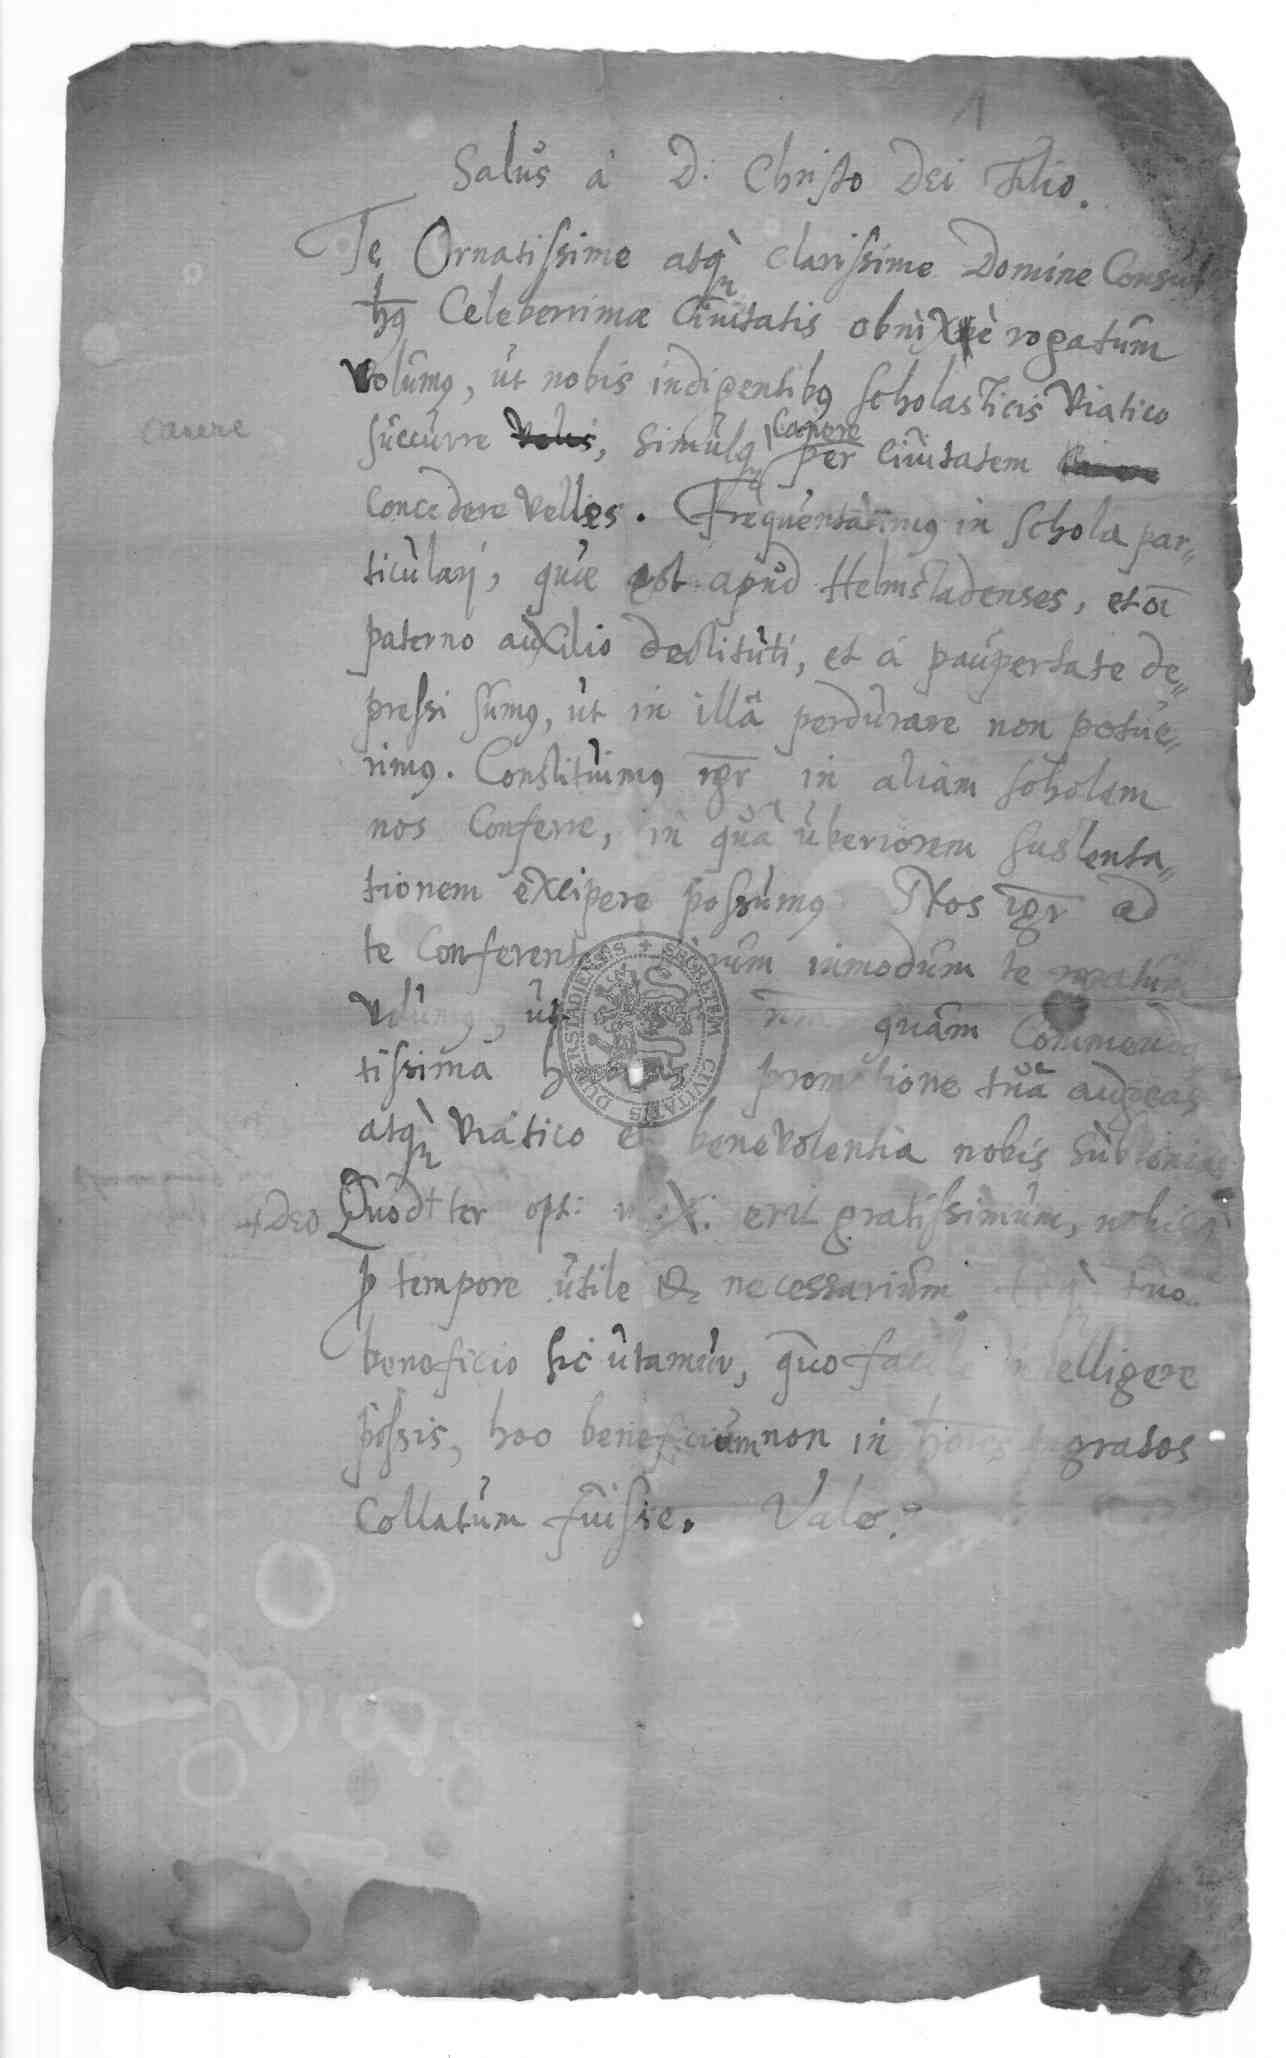 1
Salus à D. Christo Dei Filio.
Te Ornatissime atq; clarissime Domine Consul
hq Celeberrimæ Civitatis obnixè rogatum
volumq, ut nobis indigentibq scholasticis viatico
canere
succurre velis, simulq; canere per civitatem
concedere velles. Frequentavimq in schola par„
ticularj, quæ est apud Helmstadenses, et oī
paterno auxilio destituti, et à paupertate de„
pressi sumq, ut in illâ perdurare non potue„
rimq. Constituimq igr in aliam scholam
nos conferre, in quâ uberiorem sustenta„
tionem excipere possumq Nos igr ad
te inmodum te rogatum
volumq, ut quam commenda
tissima promotione tuâ augeas
atq; viatico et benevolentia nobis
+ DEO Quod + ter opt: erit gratissimum,
p tempore utile & necessarium tuo
beneficio sic utamur, quo facile intelligere
possis, hoc beneficium non in ingratos
collatum fuisse. Vale.
SECRETUM CIVITATIS DUDERSTADIENSIS